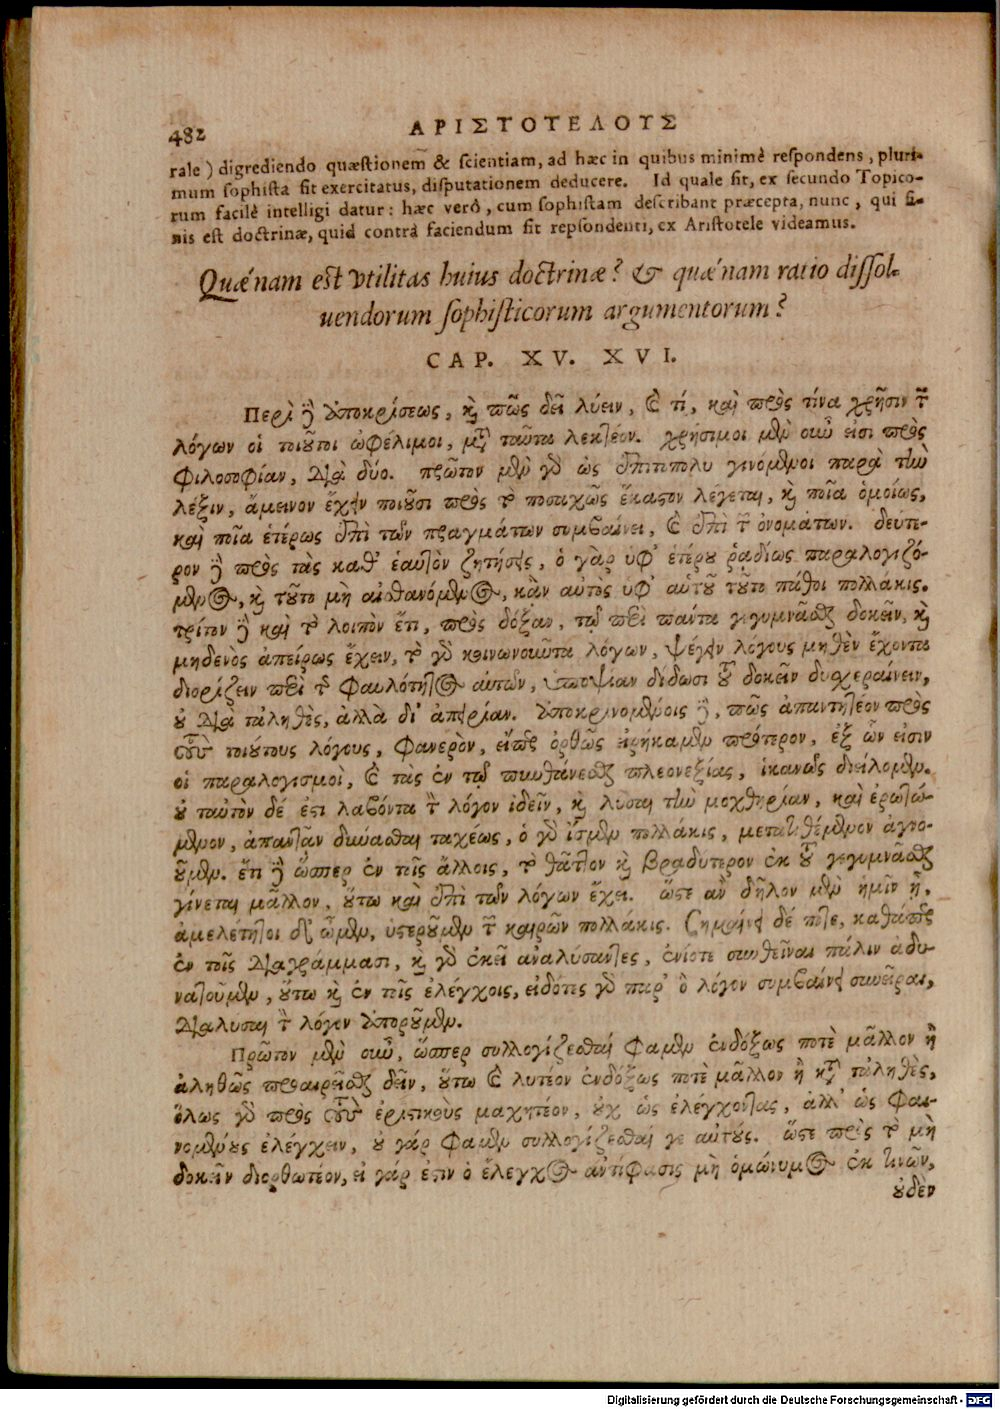 482 ΑΡΙΣΤΟΤΕΛΟΥΣ
rale) digrediendo quæstionem & scientiam, ad hæc in quibus minimè respondens, pluri-
mum sophista sit exercitatus, disputationem deducere. Id quale sit, ex secundo Topico-
rum facilè intelligi datur: hæc verò, cum sophistam describant præcepta, nunc, qui fi-
nis est doctrinæ, quid contrà faciendum sit repsondenti, ex Aristotele videamus.
Quænam est vtilitas huius doctrinæ? & quænam ratio dissol-
uendorum sophisticorum argumentorum?
CAP. XV. XVI.
Περὶ ἢ ὑποκρίσεως, καὶ πῶς δεῖ λύειν, καὶ τί, καὶ πρὸς τίνα χρῆσιν τῶν
λόγων οἱ τοιοῦτοι ὠφέλιμοι, μετὰ ταῦτα λεκτέον. χρήσιμοι μὲν οὖν εἰσι πρὸς
φιλοσοφίαν, διὰ δύο. πρῶτον μὲν γὰρ ὡς ἐπιτιπολυ γινόμενοι παρὰ τὴν
λέξιν, ἄμεινον ἔχειν ποιοῦσι πρὸς τὸ ποσαχῶς ἕκαστον λέγεται, καὶ ποῖα ὁμοίως,
καὶ ποῖα ἑτέρως ἐπὶ τῶν πραγμάτων συμβαίνει, καὶ ἐπὶ τῶν ὀνομάτων. δεύτε-
ρον δὲ πρὸς τὰς καθ' ἑαυτὸν ζητήσεις, ὁ γὰρ ὑφ' ἑτέρου ῥαδίως παραλογιζό-
μενος, καὶ τοῦτο μὴ αἰσθανόμενος, κἂν αὐτὸς ὑφ' αὑτοῦ τοῦτο πάθοι πολλάκις.
τρίτον δὲ καὶ τὸ λοιπὸν ἔτι, πρὸς δόξαν, τῷ περὶ πάντα γεγυμνάσθαι δοκεῖν, καὶ
μηδενὸς ἀπείρως ἔχειν, τὸ γὰρ κοινωνοῦντα λόγων, ψέγειν λόγους μηθὲν ἔχοντα
διορίζειν περὶ τῆς φαυλότητος αὐτῶν, ὑποψίαν δίδωσι τοῦ δοκεῖν δυσχεραίνειν,
οὐ διὰ τἀληθὲς, ἀλλὰ δι' ἀπειρίαν. ὑποκρινομένοις δὲ, πῶς ἀπαντητέον πρὸς
τοὺς τοιούτους λόγους, φανερὸν, εἴπερ ὀρθῶς εἰρήκαμεν πρότερον, ἐξ ὧν εἰσιν
οἱ παραλογισμοὶ, καὶ τὰς ἐν τῷ πυνθάνεσθαι πλεονεξίας, ἱκανῶς διείλομεν.
οὐ ταὐτὸν δέ ἐστι λαβόντα τὸν λόγον ἰδεῖν, καὶ λῦσαι τὴν μοχθηρίαν, καὶ ἐρωτώ-
μενον, ἀπαντᾶν δύνασθαι ταχέως, ὃ γὰρ ἴσμεν πολλάκις, μετατιθέμενον ἀγνο-
οῦμεν. ἔτι δὲ ὥσπερ ἐν τοῖς ἄλλοις, τὸ θᾶττον καὶ βραδυτερον ἐκ τοῦ γεγυμνάσθαι
γίνεται μᾶλλον, οὕτω καὶ ἐπὶ τῶν λόγων ἔχει. ὥστε ἂν δῆλον μὲν ἡμῖν ᾖ,
ἀμελέτητοι δὲ ὦμεν, ὑστεροῦμεν τῶν καιρῶν πολλάκις. Συμβαίνει δέ ποτε, καθάπερ
ἐν τοῖς διαγράμμασι, καὶ γὰρ ἐκεῖ ἀναλύσαντες, ἐνίοτε συνθεῖναι πάλιν ἀδυ-
νατοῦμεν, οὕτω καὶ ἐν τοῖς ἐλέγχοις, εἰδότες γὰρ παρ' ὃ λόγον συμβαίνει συνεῖραι,
διαλυσαι τὸν λόγον ἀποροῦμεν.
Πρῶτον μὲν οὖν, ὥσπερ συλλογίζεσθαί φαμεν ἐνδόξως ποτὲ μᾶλλον ἢ
ἀληθῶς προαιρεῖσθαι δεῖν, οὕτω καὶ λυτέον ἐνδόξως ποτὲ μᾶλλον ἢ κατὰ τἀληθὲς,
ὅλως γὰρ πρὸς τοὺς ἐριστικοὺς μαχητέον, οὐχ ὡς ἐλέγχοντας, ἀλλ' ὡς φαι-
νομένους ἐλέγχειν, οὐ γάρ φαμεν συλλογίζεσθαί γε αὐτούς. ὥστε πρὸς τὸ μὴ
δοκεῖν διορθωτέον, εἰ γάρ ἐστιν ὁ ἔλεγχος ἀντίφασις μὴ ὁμώνυμος ἐκ τινῶν,
οὐδὲν
Digitalisierung gefördert durch die Deutsche Forschungsgemeinschaft - DFG